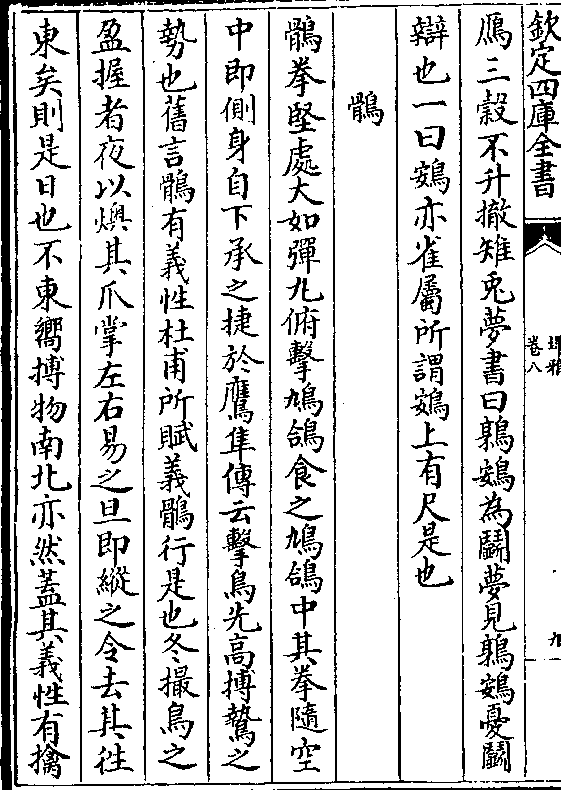 欽定四庫全書
埤雅
卷八
九
鴈三穀不升撤雉兎夢書曰鶉鴳為鬭夢見鶉鴳憂鬭
辯也一曰鴳亦雀屬所謂鴳上有尺是也
鶻
鶻拳堅處大如彈丸俯擊鳩鴿食之鳩鴿中其拳隨空
中即側身自下承之捷於鷹隼傳云擊鳥先高搏鷙之
勢也舊言鶻有義性杜甫所賦義鶻行是也冬撮鳥之
盈握者夜以燠其爪掌左右易之旦即縱之令去其徃
東矣則是日也不東嚮搏物南北亦然蓋其義性有擒